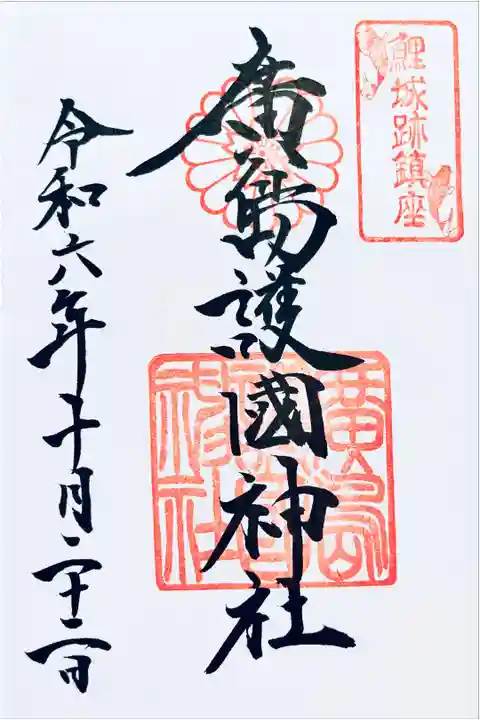 鯉城跡鎮座
廣島護國神社
廣島護國神社
令和六年十月二十二日